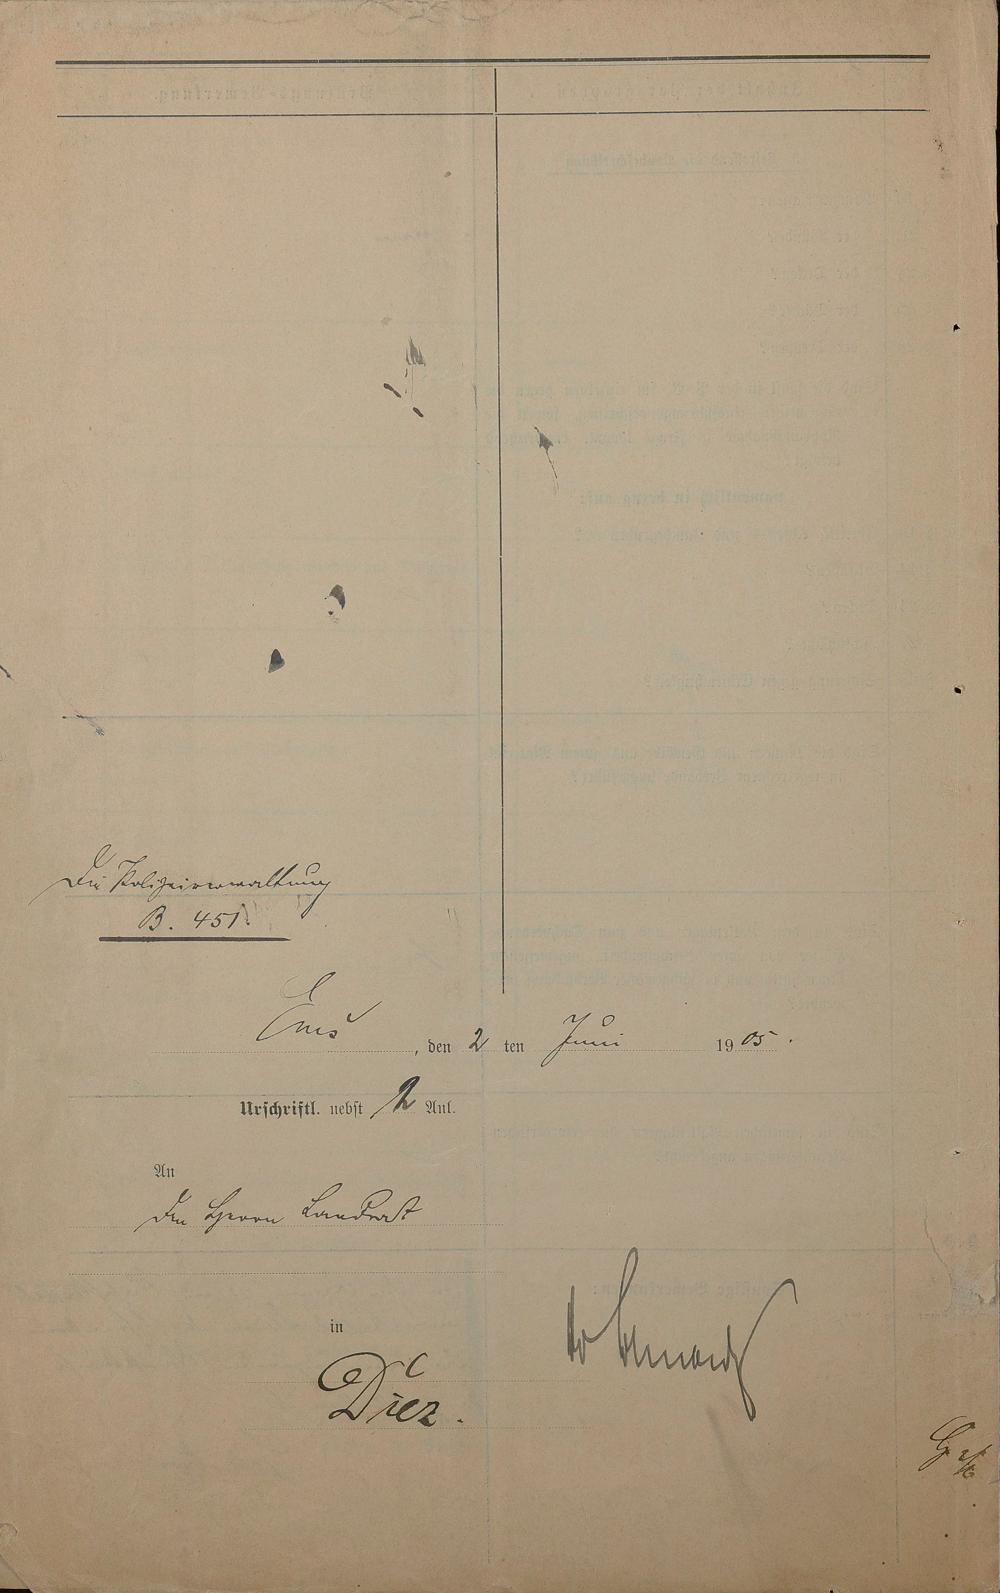 Die Polizeiverwaltung
B. 451.
Ems, den 2 ten Juni 1905.
Urschriftl. nebst 2 Anl.
An
den Herrn Landrat
in
Diez.